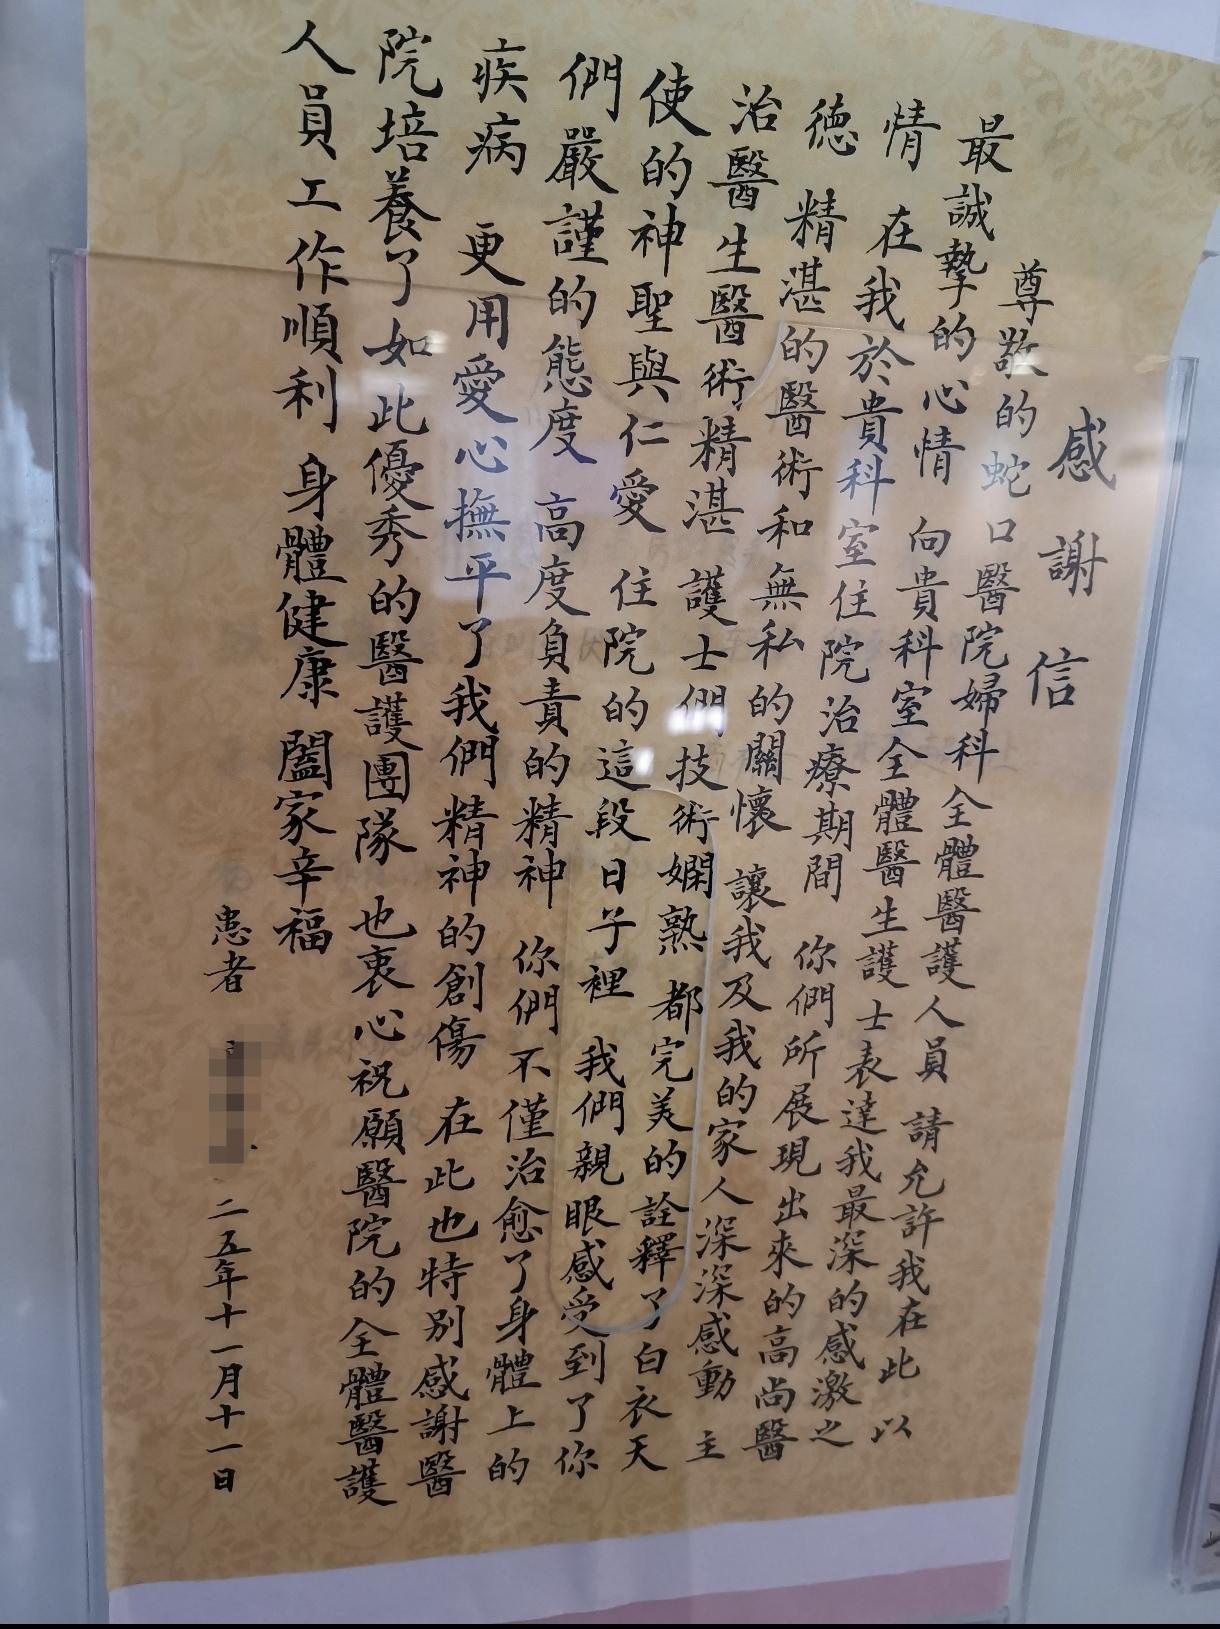 感謝信
尊敬的蛇口醫院婦科全體醫護人員 請允許我在此 以
最誠摯的心情 向貴科室全體醫生護士表達我最深的感激之
情 在我於貴科室住院治療期間 你們所展現出來的高尚醫
德 精湛的醫術和無私的關懷 讓我及我的家人深深感動 主
治醫生醫術精湛 護士們技術嫻熟 都完美的詮釋了白衣天
使的神聖與仁愛 住院的這段日子裡 我們親眼感受到了你
們嚴謹的態度 高度負責的精神 你們不僅治愈了身體上的
疾病 更用愛心撫平了我們精神的創傷 在此也特別感謝醫
院培養了如此優秀的醫護團隊 也衷心祝願醫院的全體醫護
人員工作順利 身體健康 闔家辛福
患者
二五年十一月十一日